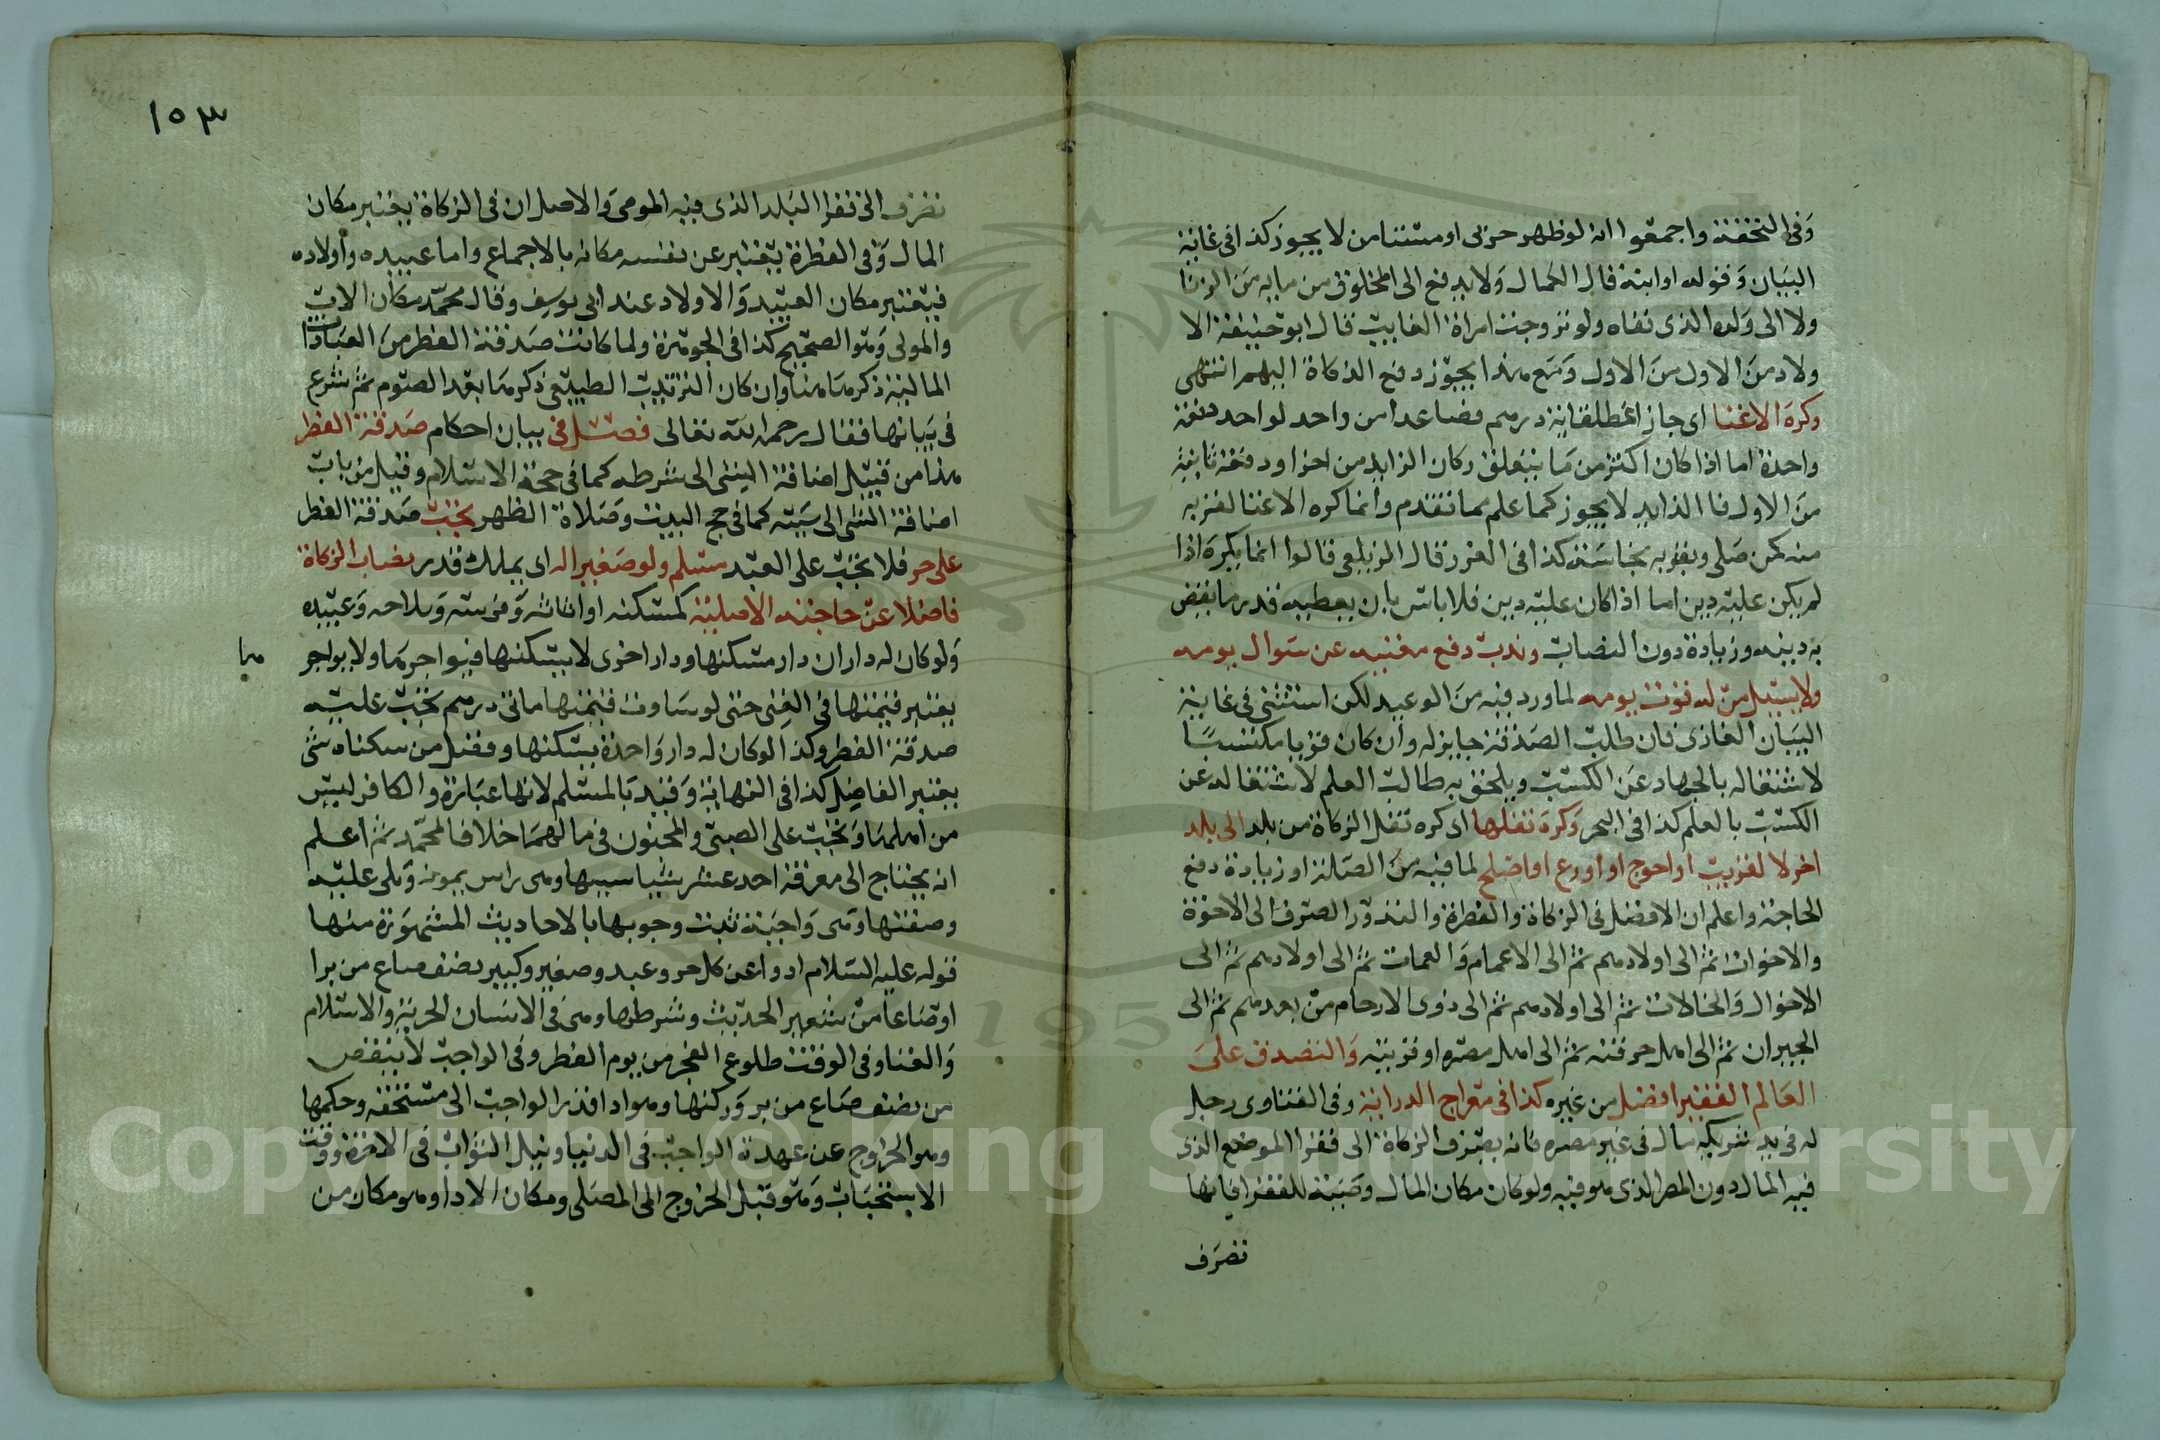 وفى التحفة واجمعوا انه لو ظهر حربى او مستامن لا يجوز كذا فى غاية
البيان وقوله او ابنه قال الكمال ولا يدفع الى المخلوق من مايه من الزنا
ولا الى ولده الذى نفاه ولو تزوجت امراة الغايب قال ابو حنيفة الا
ولاد من الاول من الاول ومع هذا يجوز دفع الزكاة اليهم انتهى
وكره الاغنا اى جاز اعطا فقاية درهم فصاعدا من واحد لواحد دفعة
واحدة اما اذا كان اكثر من ما يتعلق ركان الزايد من اخر او دفعة ثانية
من الاول فا الذايد لا يجوز كما علم مما تقدم وانما كره الاغنا لقربه
منه كمن صلى وبقربه نجاسة كذا فى الغرر قال الزيلعى قالوا انما يكره اذا
لم يكن عليه دين اما اذا كان عليه دين فلا باس بان يعطيه قدر ما يقضى
به دينه وزيادة دون النصاب وندب دفع مغنيه عن سوال يومه
ولا يسيل من له قوت يومه لما ورد فيه من الوعيد لكن استثنى فى غاية
البيان الغازى فان طلب الصدقة جايز له وان كان قويا مكتسبا
لاشتغاله بالجهاد عن الكسب ويلحق به طالب العلم لاشتغاله عن
الكسب بالعلم كذا فى البحر وكره نقلها اى كره نقل الزكاة من بلد الى بلد
اخر لا لقريب او احوج او اورع او اصلح لما فيه من الصلة او زيادة دفع
الحاجة واعلم ان الافضل فى الزكاة والفطرة والنذور الصرف الى الاخوة
والاخوات ثم الى اولادهم ثم الى الاعمام والعمات ثم الى اولادهم ثم الى
الاخوال والخالات ثم الى اولادهم ثم الى ذوى الارحام من بعدهم ثم الى
الجيران ثم الى اهل حرفته ثم الى اهل مصره او قريته والتصدق على
العالم الفقير افضل من غيره كذا فى معراج الدراية وفى الفتاوى رجل
له فى يد شريكه مال فى غير مصره فانه يصرف الزكاة الى فقرا الموضع الذى
فيه المال دون المصر الذى هو فيه ولو كان مكان المال وصية للفقرا فانها
تصرف
١٥٣
تصرف الى فقرا البلد الذى فيه الموصى والاصل ان فى الزكاة يعتبر مكان
المال وفى الفطرة يعتبر عن نفسه مكانه بالاجماع واما عبيده واولاده
فيعتبر مكان العبيد والاولاد عند ابى يوسف وقال محمد مكان الاب
والمولى وهو الصحيح كذا فى الجوهرة ولما كانت صدقة الفطر من العبادات
المالية ذكرها هنا وان كان الترتيب الطبيعى ذكرها بعد الصوم ثم شرع
فى بيانها فقال رحمه الله تعالى فصل فى بيان احكام صدقة الفطر
هذا من قبيل اضافة الشى الى شرطه كما فى حجة الاسلام وقيل من باب
اضافة الشى الى سببه كما فى حج البيت وصلاة الظهر تجب صدقة الفطر
على حر فلا تجب على العبد مسلم ولو صغيرا له اى يملك قدر نصاب الزكاة
فاضلا عن حاجته الاصلية كمسكنه او اثاثه وفرسه وسلاحه وعبيده
ولو كان له داران دار مسكنها ودار اخرى لا يسكنها فيواجرها ولا يواجر
ها
يعتبر قيمتها فى الغنى حتى لو ساوت قيمتها مائتى درهم تجب عليه
صدقة الفطر وكذا لو كان له دار واحدة يسكنها وفضل من سكناه شى
يعتبر الفاضل كذا فى النهاية وقيد بالمسلم لانها عبادة والكافر ليس
من اهلها وتجب على الصبى والمجنون فى مالهما خلافا لمحمد ثم اعلم
انه يحتاج الى معرفة احد عشر شيا سببها وهى راس يمونه ويلى عليه
وصفتها وهى واجبة ثبت وجوبها بالاحاديث المشهورة منها
قوله عليه السلام ادوا عن كل حر وعبد وصغير وكبير نصف صاع من برا
او صاعا من شعير الحديث وشرطها وهى فى الانسان الحرية والاسلام
والغنا وفى الوقت طلوع الفجر من يوم الفطر وفى الواجب لا ينقص
من نصف صاع من بر وركنها وهو اداقدر الواجب الى مستحقه وحكمها
وهو الخروج عن عهدة الواجب فى الدنيا ونيل الثواب فى الاخرة ووقت
الاستحباب وهو قبل الخروج الى المصلى ومكان الادا وهو مكان من
Copyright © King Saud University
195